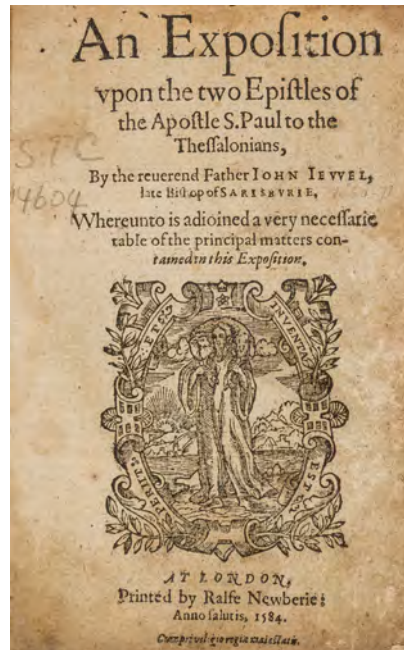 An Expoſition
vpon the two Epiſtles of
the Apoſtle S. Paul to the
Theſſalonians,
By the reuerend Father IOHN IEVVEL,
late Biſhop of SARISBVRIE,
S.T.C
4604
Whereunto is adioined a very neceſſarie
table of the principal matters con-
tained in this Expoſition.
PERIIT,
ET
INVENTA
EST
AT LONDON,
Printed by Ralfe Newberie:
Anno ſalutis, 1584.
Cum priuilegio regiæ maieſtatis.